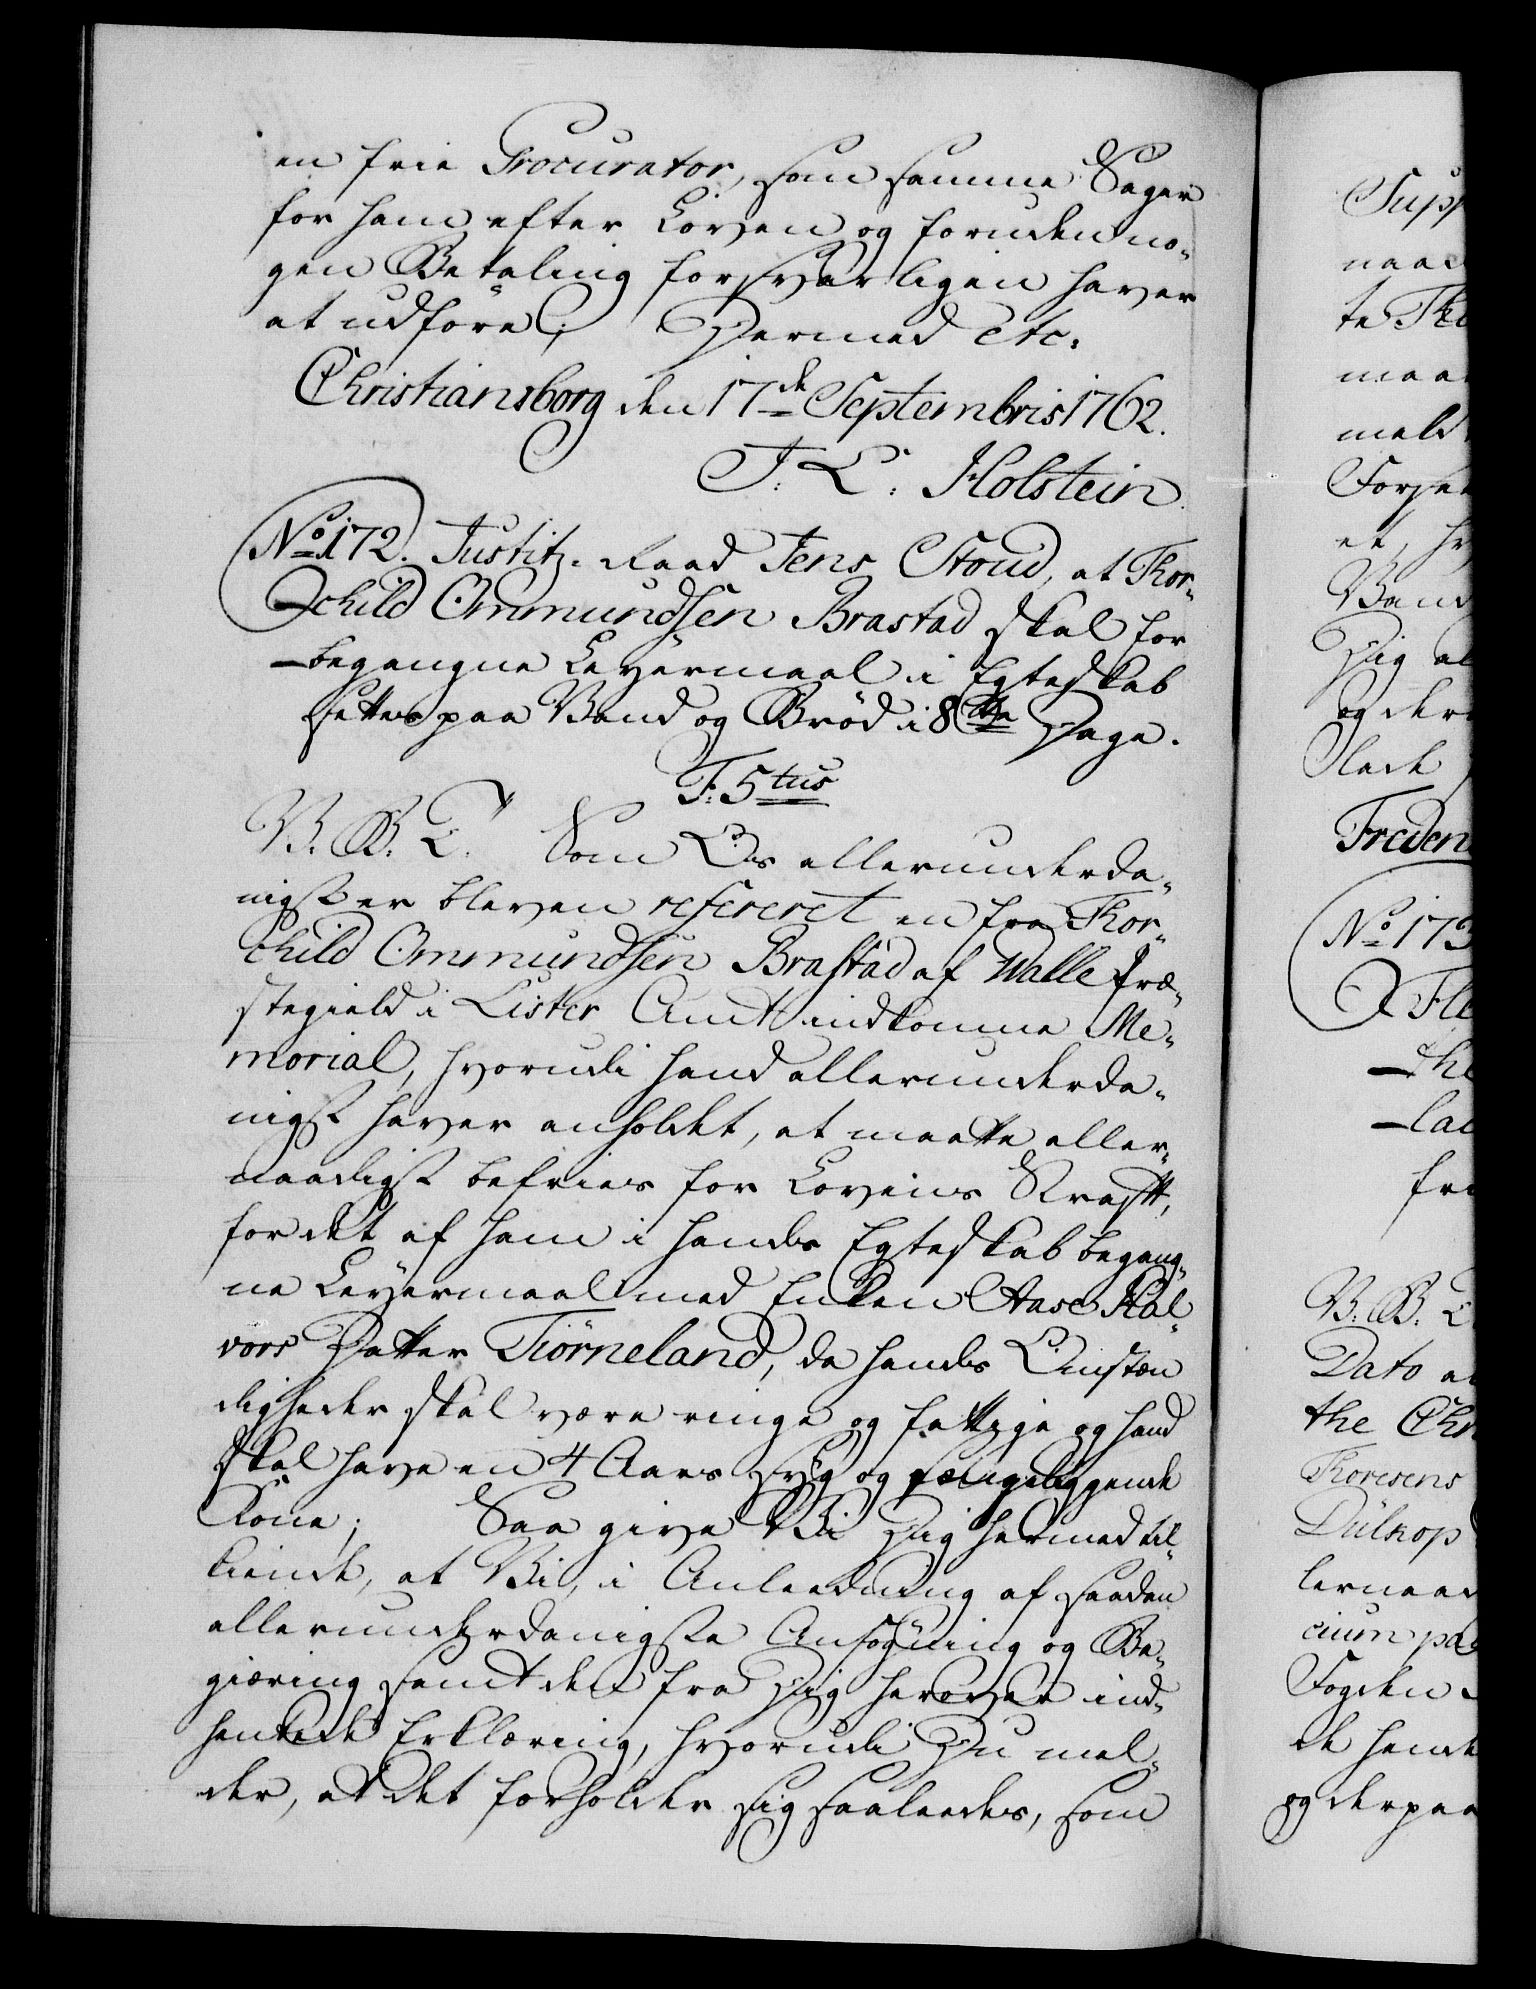 en frie Procurator, som samme Sager
for ham efter Loven og foruden no-
gen Betaling forsvarligen haver
at udføre; Dermed etc:
Christiansborg den 17de Septembris 1762.
J. L. Holstein.
No 172. Justitz-Raad Jens Stoud, at Thor-
child Ommundsen Brastad skal for
begangne Leyermaal i Egteskab
settes paa Vand og Brød i 8tte Dage.
F: 5tus
V. G. T. Som Os allerunderda-
nigst er bleven refereret en fra Thor-
child Ommundsen Brastad af Walle Præ-
stegield i Lister Amt indkomne Me-
morial, hvorudi hand allerunderda-
nigst haver anholdet, at maatte aller-
naadigst befries for Lovens Straff,
for det af ham i hands Egteskab begang-
ne Leyermaal med Enken Aase Hal-
vors Datter Tiörneland, da hands Omstæn
digheder skal være ringe og fattige og hand
skal have en 4 Aars syg og sængeliggende
Kone; Saa give Vi Dig hermed til-
kiende, at Vi, i Anleedning af saadan
allerunderdanigste Ansøgning og Be-
giæring samt den fra Dig herover ind-
hentede Erklæring, hvorudi Du mel-
der, at det forholder sig saaleedes, som
Supp
naad
te Th
maa
meld
Forse
et, h
Vand
Dig al
og der
Slet
Freden
No 173
Fle
the
lad
fr
V. G. T
Dato a
the Chr
Thoresens
Dülkop
lernaad
cium paa
Fogden
de hende
og derpaa